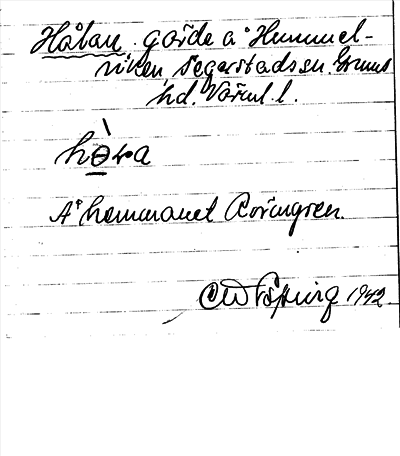 Håtan, gärde å Hummel-
viken, Segerstads sn. Grums
hd. Värml. l.
hɵ̀ta
Å hemmanet Rörängren.
1942